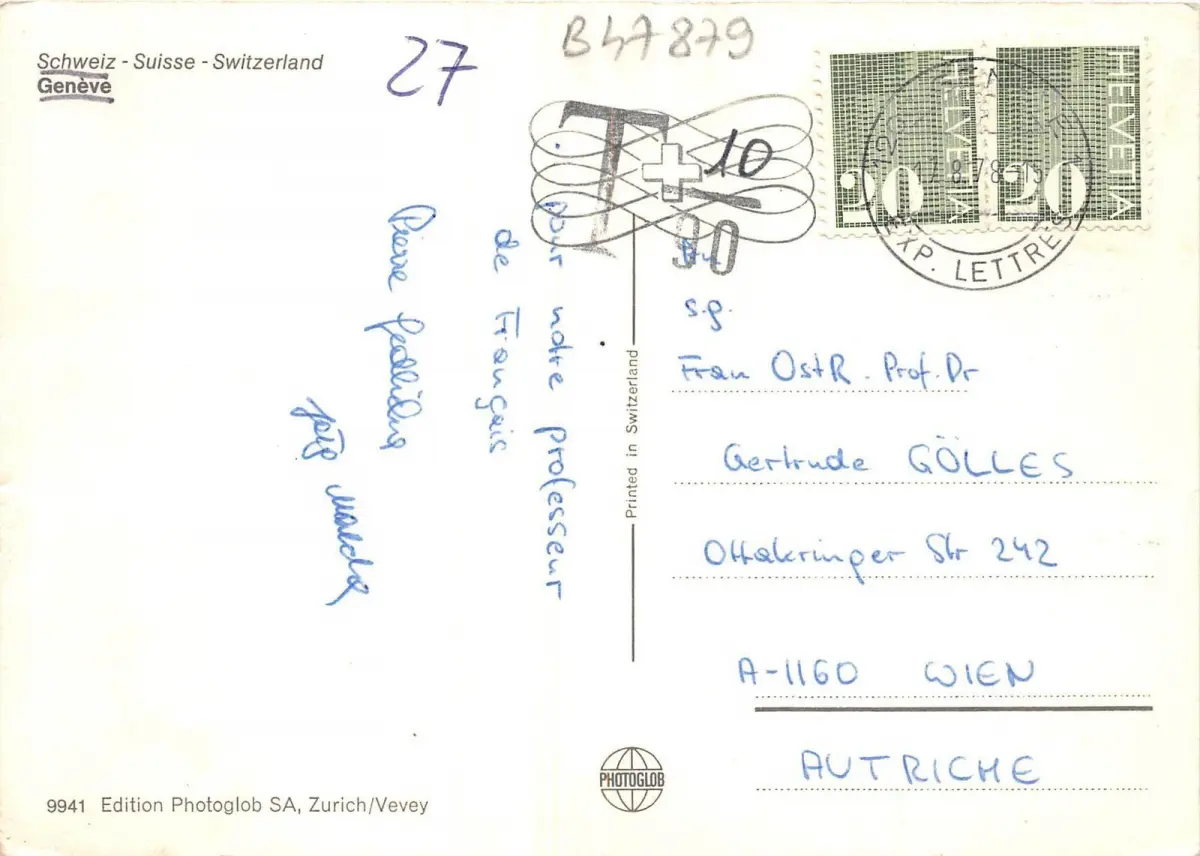 Schweiz - Suisse - Switzerland
Genève
27
B47879
T 10
90
HELVETIA
20
HELVETIA
20
17.8.78-15
EXP. LETTRES
pour notre professeur
de Français
Pierre
An
s.g.
Frau OstR. Prof. Dr
Gertrude GÖLLES
Ottakringer Str 242
A-1160 WIEN
AUTRICHE
Printed in Switzerland
PHOTOGLOB
9941 Edition Photoglob SA, Zurich/Vevey